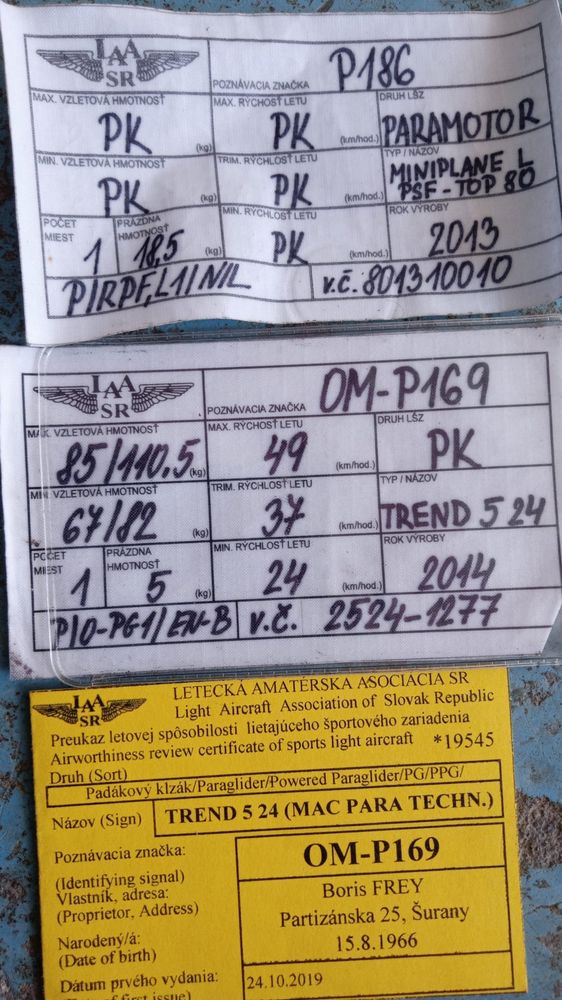 LAA
SR
POZNÁVACIA ZNAČKA P186
MAX. VZLETOVÁ HMOTNOSŤ PK (kg)
MAX. RÝCHOSŤ LETU PK (km/hod.)
DRUH LŠZ PARAMOTOR
MIN. VZLETOVÁ HMOTNOSŤ PK (kg)
TRIM. RÝCHLOSŤ LETU PK (km/hod.)
TYP / NÁZOV MINIPLANE L
PSF-TOP 80
POČET MIEST 1
PRÁZDNA HMOTNOSŤ 18,5 (kg)
MIN. RÝCHLOSŤ LETU PK (km/hod.)
ROK VÝROBY 2013
P/RPF,L1/N/L
v.č. 801310010
LAA
SR
POZNÁVACIA ZNAČKA OM-P169
MAX. VZLETOVÁ HMOTNOSŤ 85/110,5 (kg)
MAX. RÝCHOSŤ LETU 49 (km/hod.)
DRUH LŠZ PK
MIN. VZLETOVÁ HMOTNOSŤ 67/82 (kg)
TRIM. RÝCHLOSŤ LETU 37 (km/hod.)
TYP / NÁZOV TREND 5 24
POČET MIEST 1
PRÁZDNA HMOTNOSŤ 5 (kg)
MIN. RÝCHLOSŤ LETU 24 (km/hod.)
ROK VÝROBY 2014
P/O-PG1/EN-B
v.č. 2524-1277
LAA
SR
LETECKÁ AMATÉRSKA ASOCIÁCIA SR
Light Aircraft Association of Slovak Republic
Preukaz letovej spôsobilosti lietajúceho športového zariadenia
Airworthiness review certificate of sports light aircraft *19545
Druh (Sort)
Padákový klzák/Paraglider/Powered Paraglider/PG/PPG/
Názov (Sign) TREND 5 24 (MAC PARA TECHN.)
Poznávacia značka: OM-P169
(Identifying signal)
Vlastník, adresa: Boris FREY
(Proprietor, Address) Partizánska 25, Šurany
Narodený/á: 15.8.1966
(Date of birth)
Dátum prvého vydania: 24.10.2019
(Date of first issue)